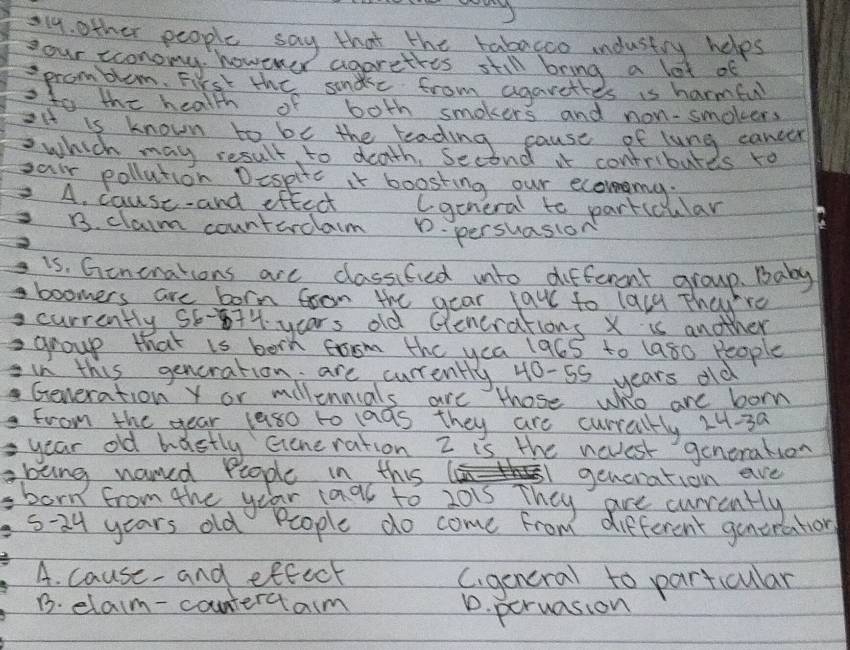 14. Other people say that the tabacco industry helps
our economy. however agarettes still bring a lot of
prombem. First the smoke from agarettes is harmful
to the health of both smokers and non-smokers
it is known to be the leading cause of lung cancer
which may result to death. Second it contributes to
air pollution Despite it boosting our ecomomy.
A. cause-and effect C general to particular
B. claim counterclaim D. persuasion
15. Genenations are classified into different group. Baby
boomers are born from the year 1946 to 1964 They're
currently 56-74 years old Generations X is another
group that is born from the yea 1965 to 1980 People
in this generation. are currently 40-55 years old
Generation Y or millennials are those who are born
from the year 1980 to 1995 they are currently 24-39
year old lastly Generation Z is the newest generation
being named People in this generation are
born from the year 1996 to 2015 They are currently
5-24 years old People do come from different generation
A. cause-and effect C. general to particular
B. claim-counterclaim D. peruasion